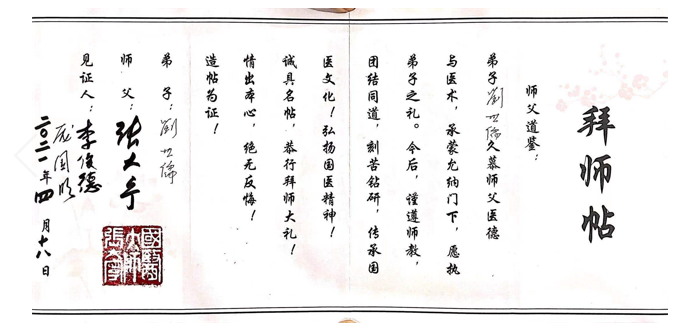 拜师帖
师父道鉴：
弟子劉世儒久慕师父医德
与医术，承蒙允纳门下，愿执
弟子之礼。今后，谨遵师教，
团结同道，刻苦钻研，传承国
医文化！弘扬国医精神！
诚具名帖，恭行拜师大礼！
情出本心，绝无反悔！
造帖为证！
弟子：劉世儒
师父：张大宁
國醫大师张大宁
见证人：李俊德
庞国明
二〇二一年四月十八日